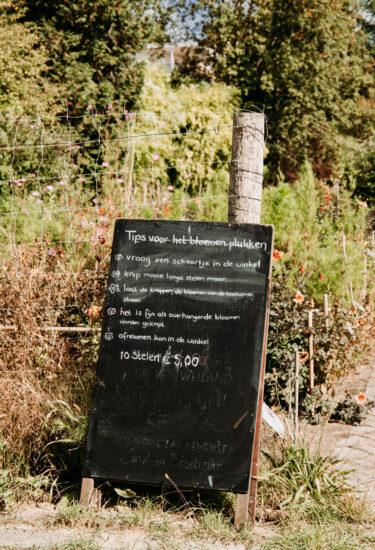 Tips voor het bloemen plukken
vraag een schaartje in de winkel
knip mooie lange stelen maar
laat de knoppen, de bloemen van de toekomst
staan
het is fijn als overhangende bloemen
worden geknipt
afrekenen kan in de winkel
10 Stelen € 5,00
WEILAND
GEWENST